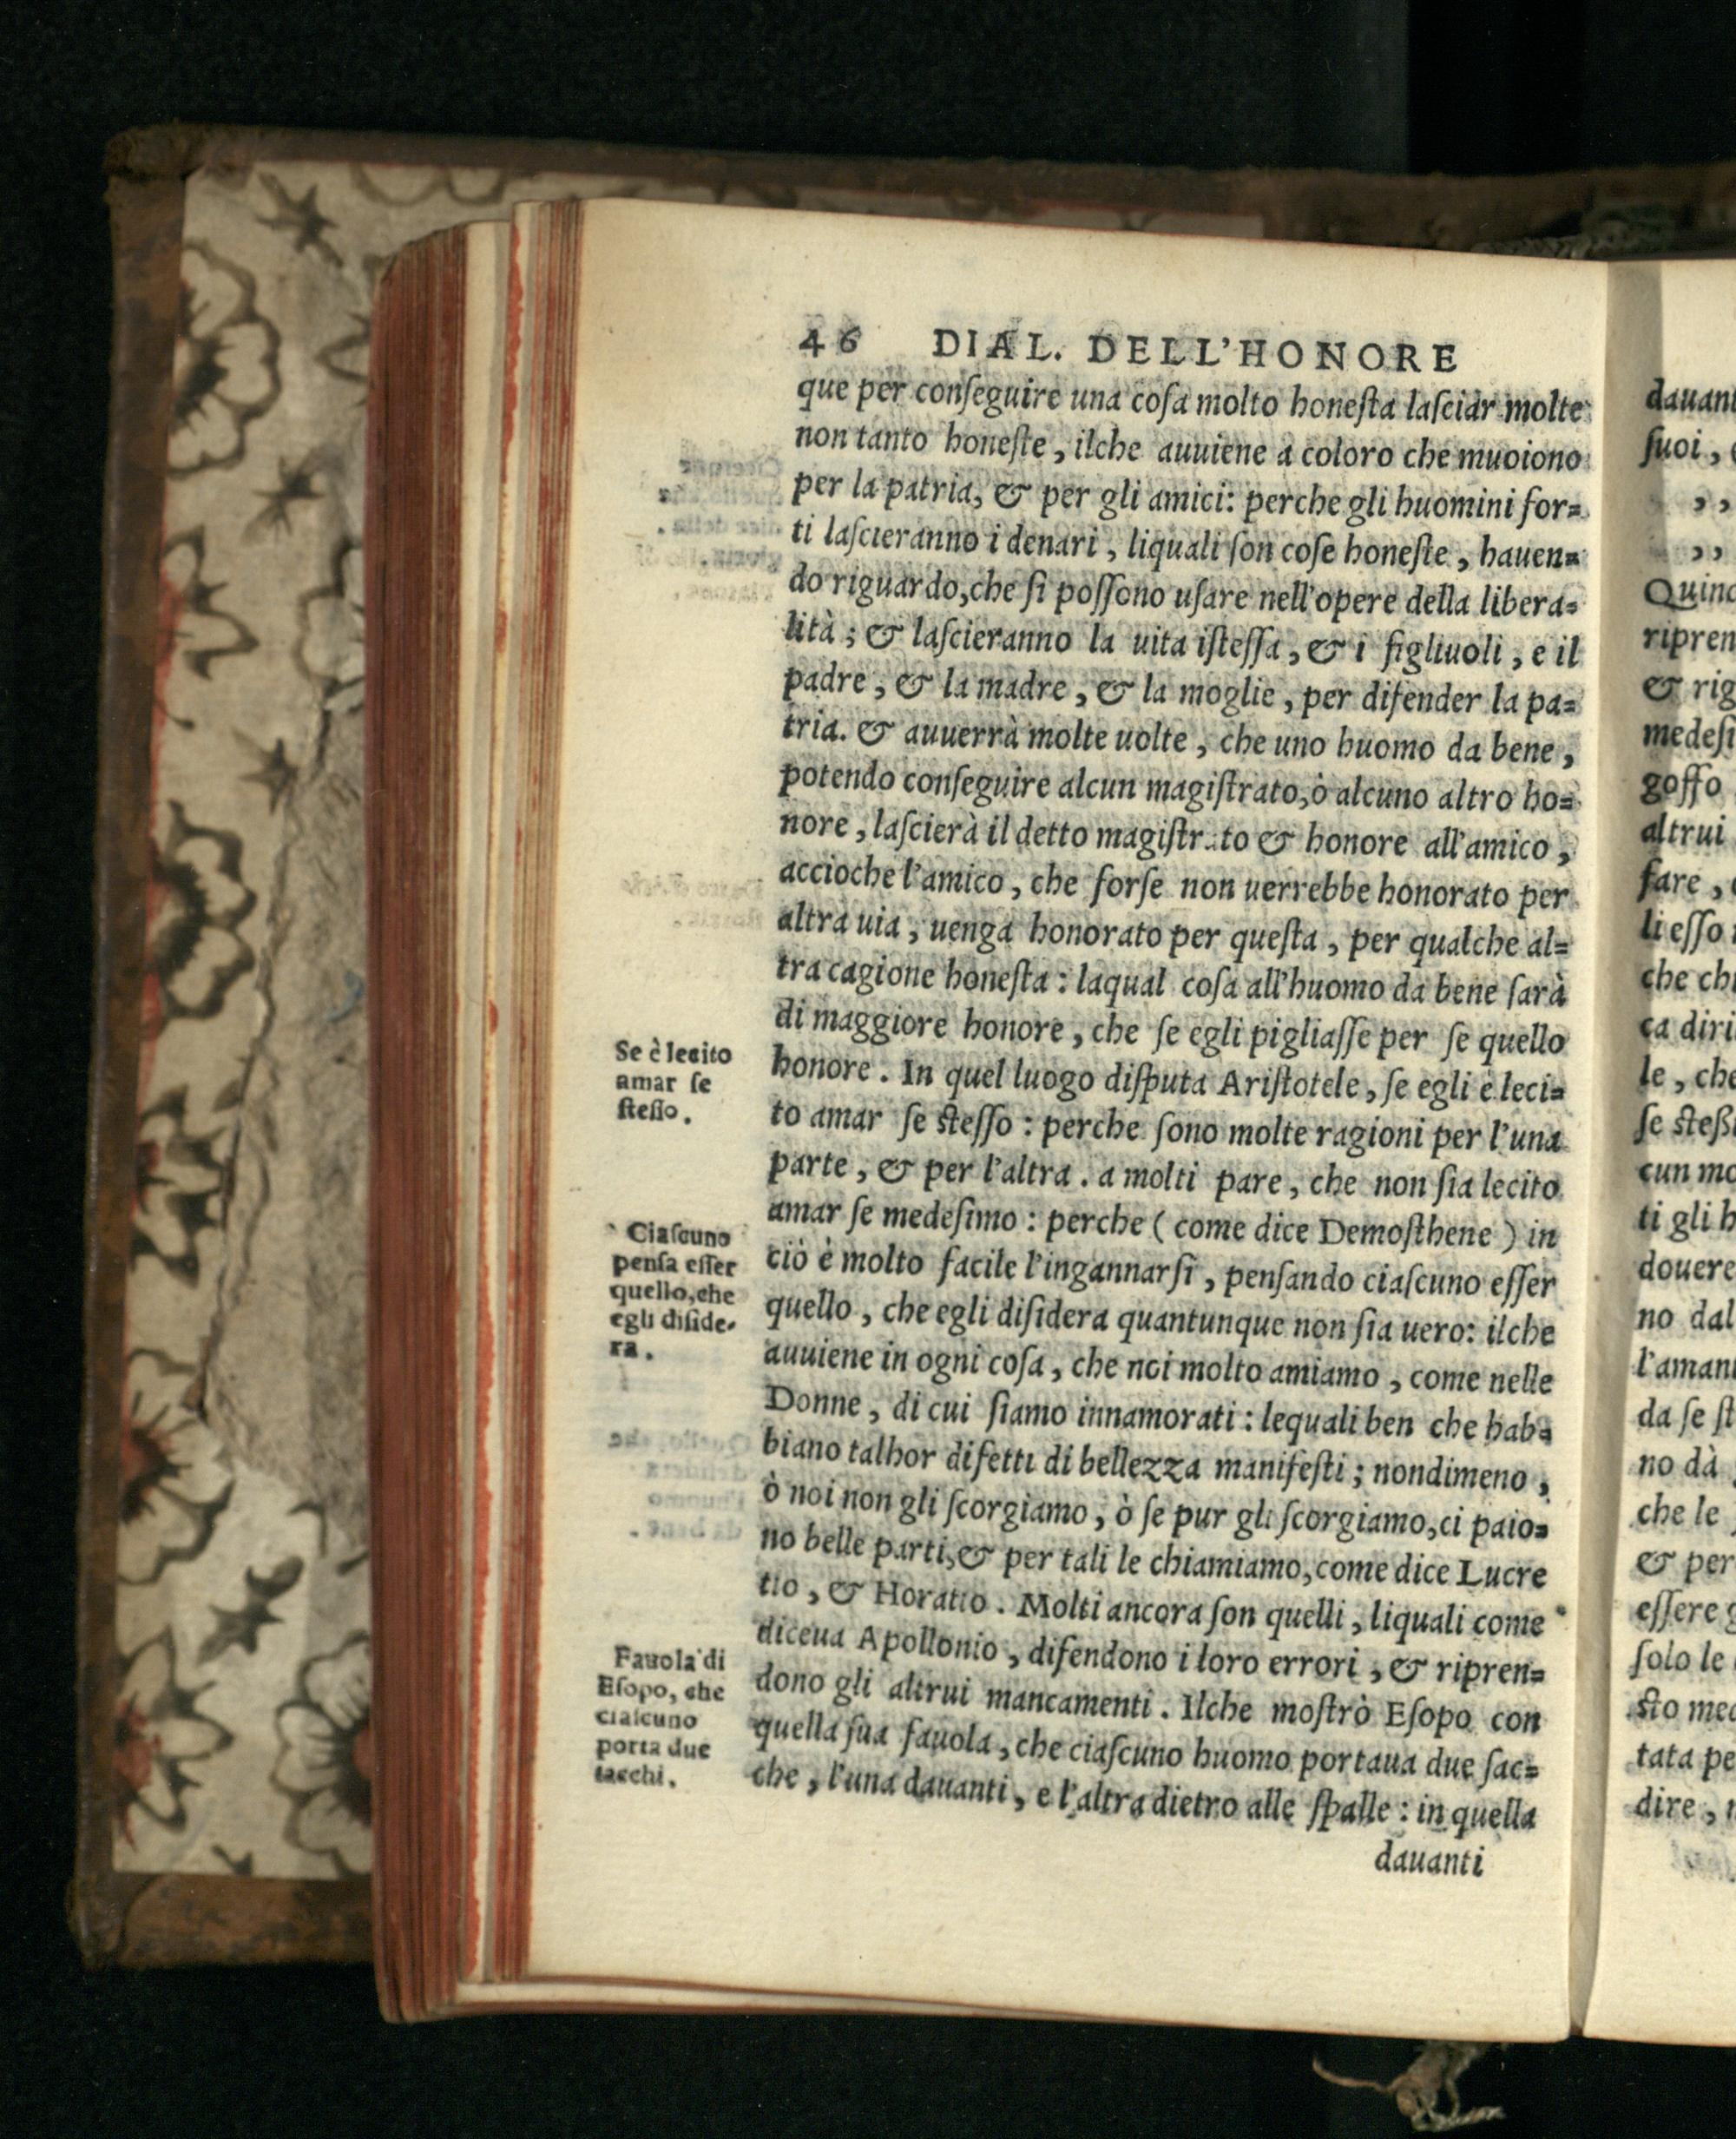 46 DIAL. DELL'HONORE
que per conſeguire una coſa molto honeſta laſciar molte
non tanto honeſte, ilche auuiene a coloro che muoiono
per la patria, & per gli amici: perche gli huomini for=
ti laſcieranno i denari, liquali ſon coſe honeſte, hauen=
do riguardo, che ſi poſſono uſare nell'opere della libera=
lità; & laſcieranno la uita iſteſſa, & i figliuoli, e il
padre, & la madre, & la moglie, per difender la pa=
tria. & auuerrà molte uolte, che uno huomo da bene,
potendo conſeguire alcun magiſtrato, ò alcuno altro ho=
nore, laſcierà il detto magiſtrato & honore all'amico,
accioche l'amico, che forſe non uerrebbe honorato per
altra uia, uenga honorato per queſta, per qualche al=
tra cagione honeſta: laqual coſa all'huomo da bene ſarà
di maggiore honore, che ſe egli pigliaſſe per ſe quello
honore. In quel luogo diſputa Ariſtotele, ſe egli è leci=
to amar ſe ſteſſo: perche ſono molte ragioni per l'una
parte, & per l'altra. a molti pare, che non ſia lecito
amar ſe medeſimo: perche (come dice Demoſthene) in
ciò è molto facile l'ingannarſi, penſando ciaſcuno eſſer
quello, che egli diſidera quantunque non ſia uero: ilche
auuiene in ogni coſa, che noi molto amiamo, come nelle
Donne, di cui ſiamo innamorati: lequali ben che hab=
biano talhor difetti di bellezza manifeſti; nondimeno,
ò noi non gli ſcorgiamo, ò ſe pur gli ſcorgiamo, ci paio=
no belle parti, & per tali le chiamiamo, come dice Lucre
tio, & Horatio. Molti ancora ſon quelli, liquali come
diceua Apollonio, difendono i loro errori, & ripren=
dono gli altrui mancamenti. Ilche moſtrò Eſopo con
quella ſua fauola, che ciaſcuno huomo portaua due ſac=
che, l'una dauanti, e l'altra dietro alle ſpalle: in quella
dauanti
Se è lecito
amar ſe
ſteſſo.
Ciaſcuno
penſa eſſer
quello, che
egli diſide-
ra.
Fauola di
Eſopo, che
ciaſcuno
porta due
ſacchi.
dauant
ſuoi,
,,
,,
Quinc
ripren
& rig
medeſi
goffo
altrui
fare,
li eſſo
che chi
ca diri
le, che
ſe ſteßi
cun mo
ti gli h
douere
no dal
l'aman
da ſe ſt
no dà
che le
& per
eſſere g
ſolo le
ſto med
tata pe
dire,